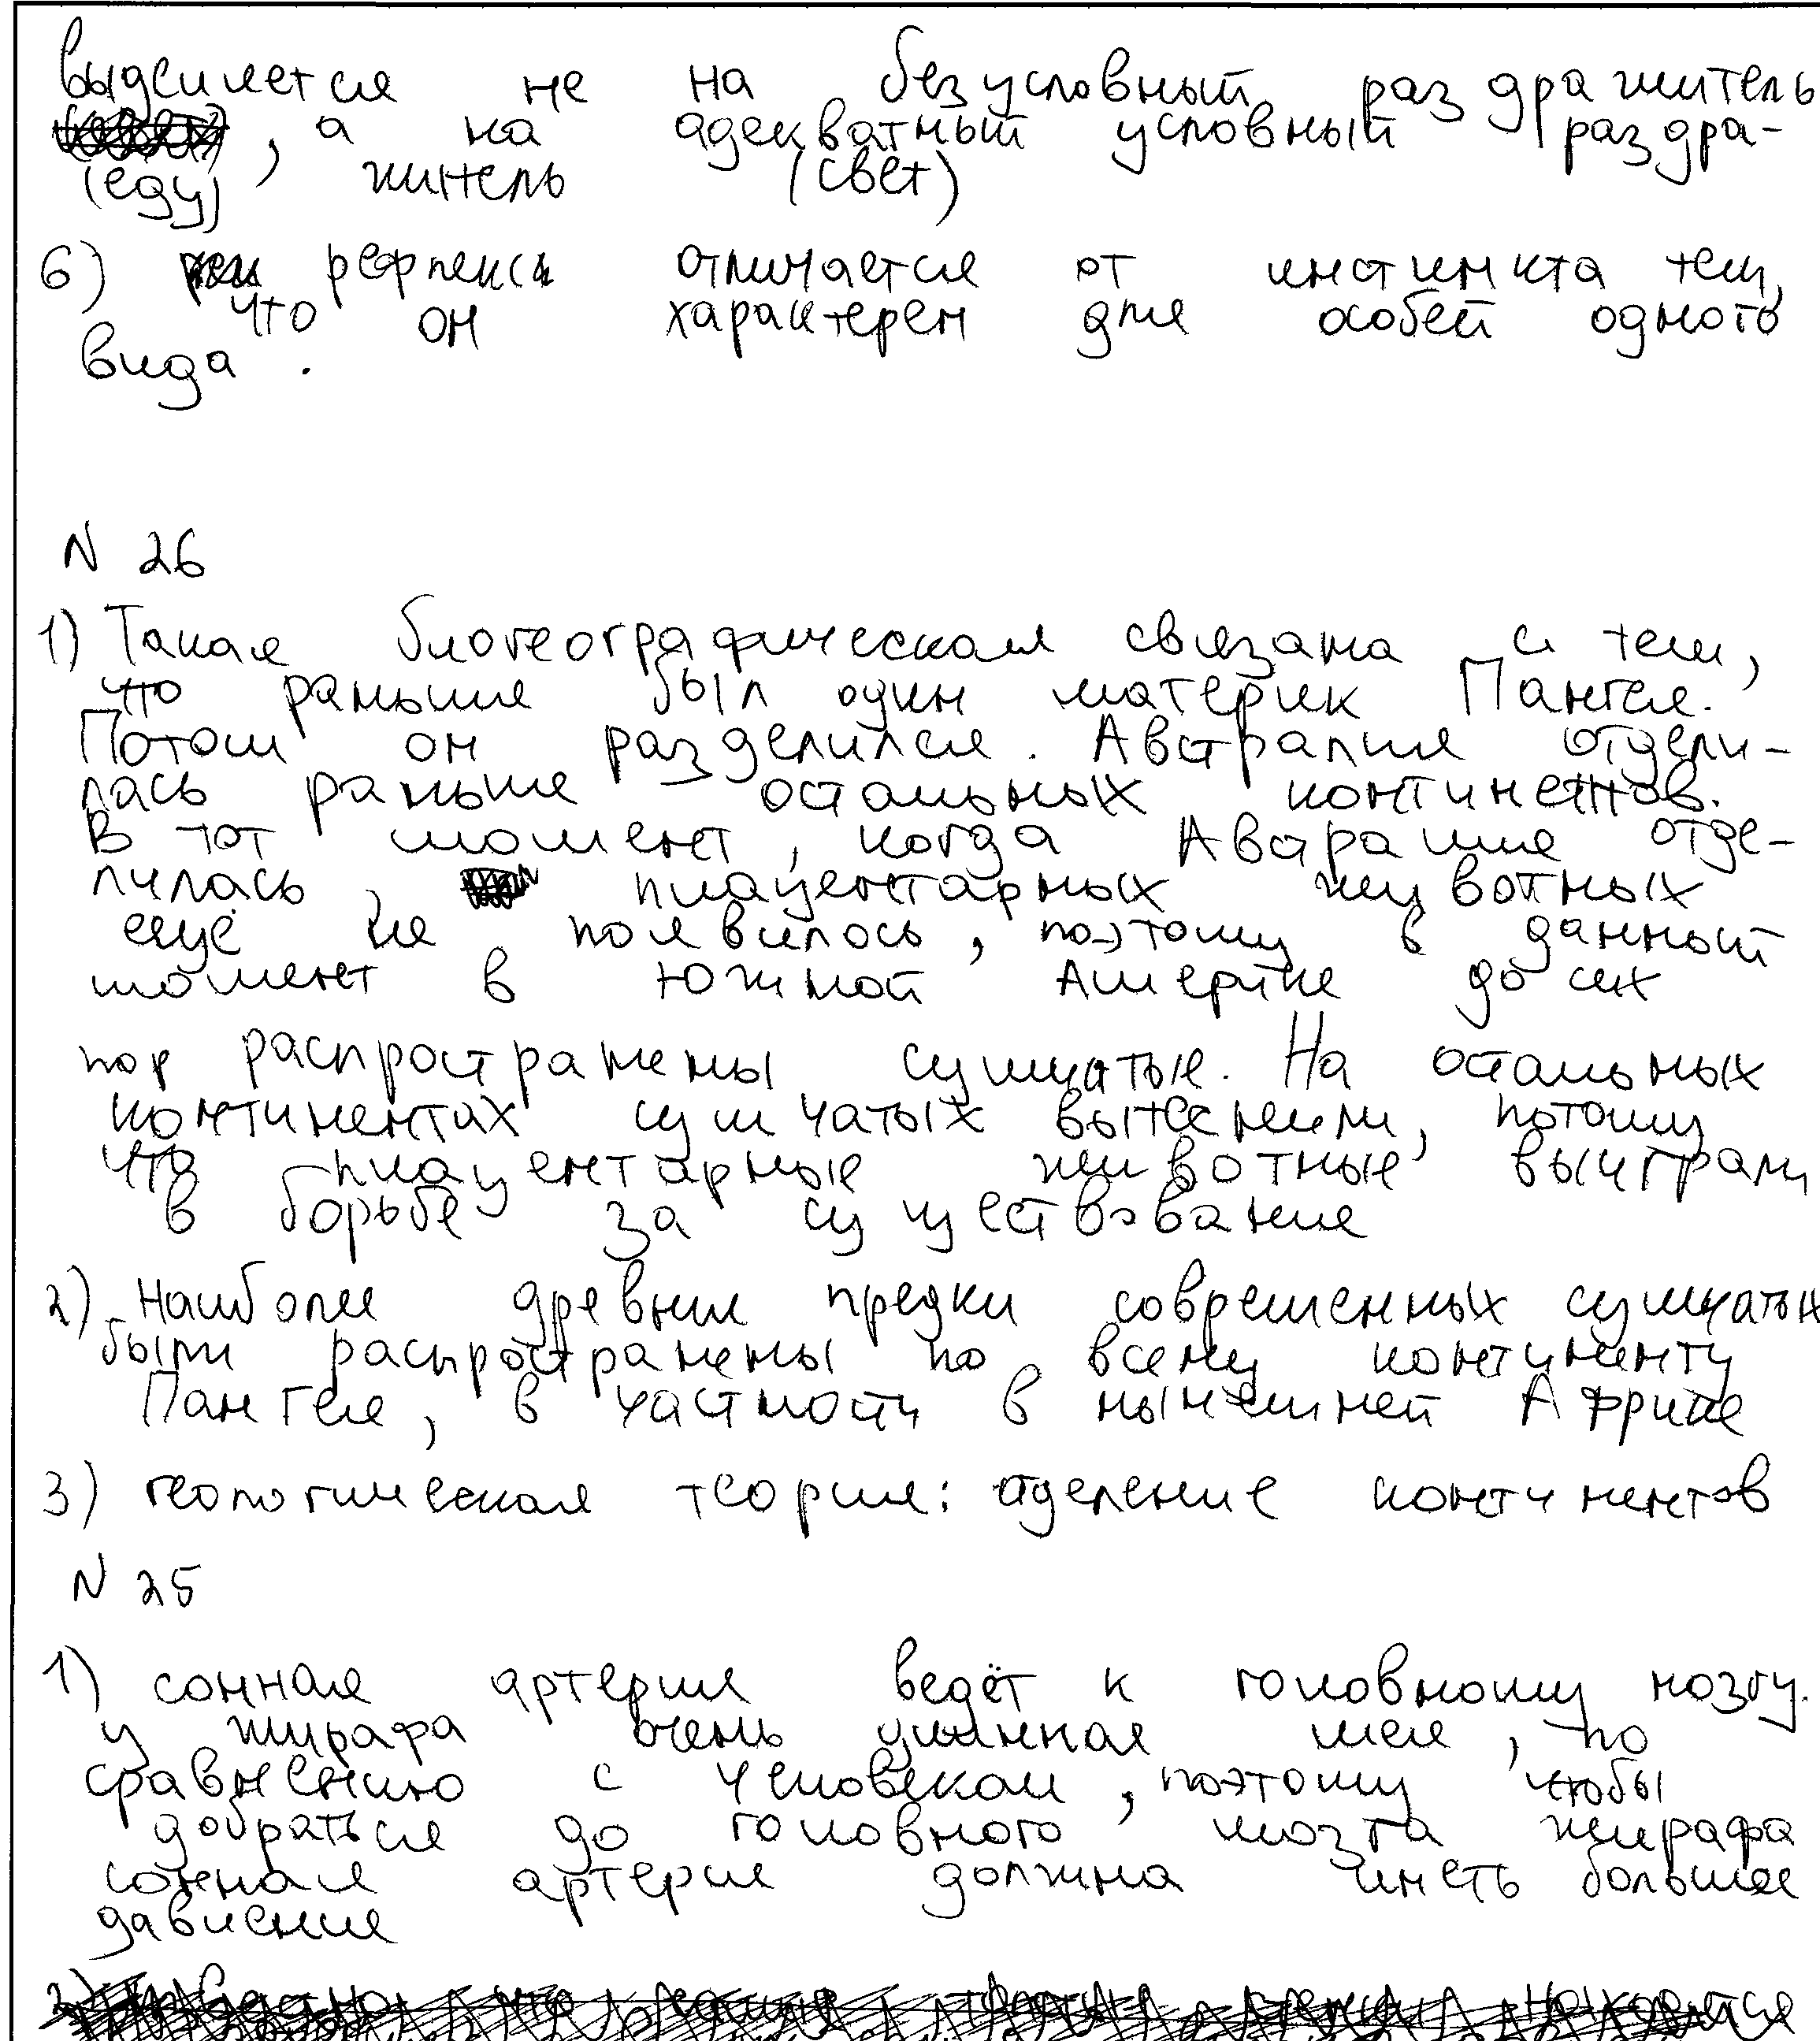 выделяется не на безусловный раздражитель
(еду), а на адекватный условный раздра-
житель (свет)
6) рефлекс отличается от инстинкта тем,
что он характерен для особей одного
вида.
N 26
1) Такая биогеографическая связана с тем,
что раньше был один материк Пангея.
Потом он разделился. Австралия отдели-
лась раньше остальных континентов.
В тот момент, когда Австралия отде-
лилась, плацентарных животных
ещё не появилось, поэтому в данный
момент в Южной Америке до сих
пор распространены сумчатые. На остальных
континентах сумчатых вытеснили, потому
что плацентарные животные выиграли
в борьбе за существование
2) Наиболее древние предки современных сумчатых
были распространены по всему континенту
Пангее, в частности в нынешней Африке
3) геологическая теория: отделение континентов
N 25
1) сонная артерия ведёт к головному мозгу.
у жирафа очень длинная шея, по
сравнению с человеком, поэтому чтобы
добраться до головного мозга жирафа
сонная артерия должна иметь большее
давление